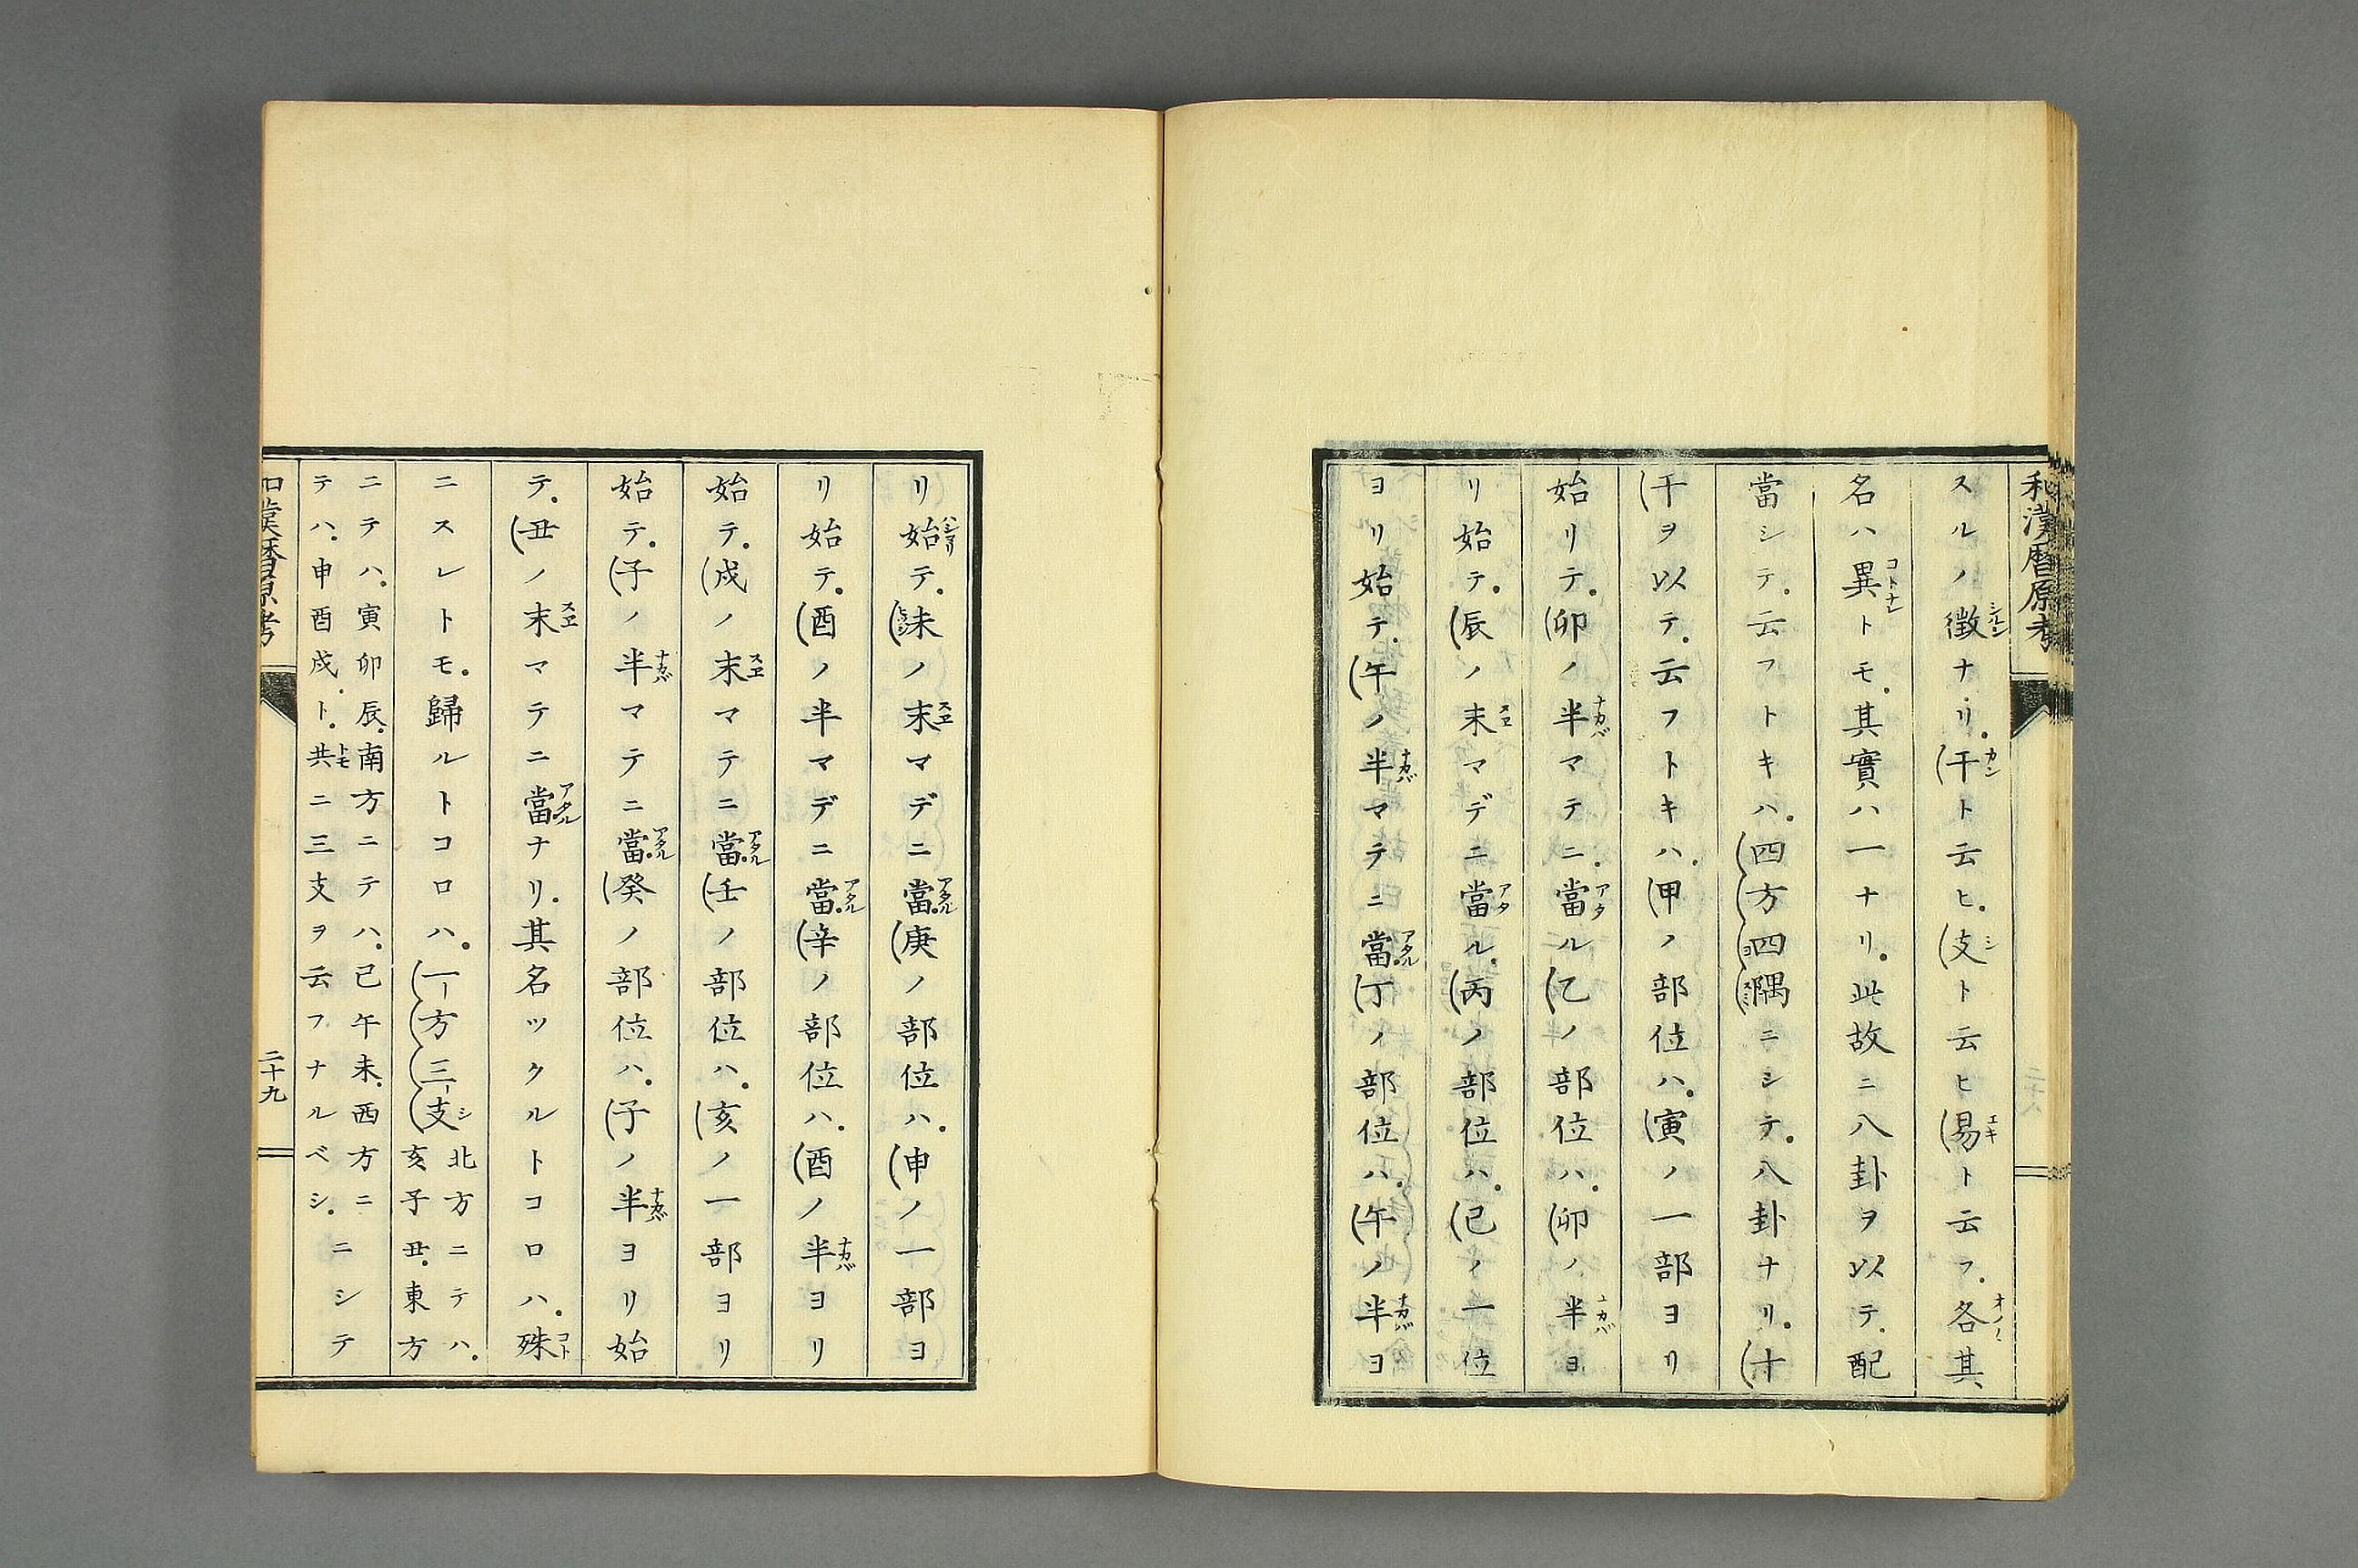 和漢暦原考
スルノ徴ナリ。干ト云ヒ。支ト云ヒ易ト云フ。各其
名ハ異トモ。其實ハ一ナリ。此故ニ八卦ヲ以テ。配
當シテ。云フトキハ。四方四隅ニシテ。八卦ナリ。十
干ヲ以テ。云フトキハ。甲ノ部位ハ。寅ノ一部ヨリ
始リテ。卯ノ半マテニ。當ル乙ノ部位ハ。卯ノ半ヨ
リ始テ。辰ノ末マデニ當ル。丙ノ部位ハ。巳ノ一位
ヨリ始テ。午ノ半マテニ當。丁ノ部位ハ。午ノ半ヨ
リ始テ。未ノ末マデニ當。庚ノ部位ハ。申ノ一部ヨ
リ始テ。酉ノ半マデニ當。辛ノ部位ハ。酉ノ半ヨリ
始テ。戌ノ末マテニ當。壬ノ部位ハ。亥ノ一部ヨリ
始テ。子ノ半マテニ當。癸ノ部位ハ。子ノ半ヨリ始
テ。丑ノ末マテニ當ナリ。其名ツクルトコロハ。殊
ニスレトモ。歸ルトコロハ。一方三支
北方ニテハ。
亥子丑。東方
ニテハ。寅卯辰。南方ニテハ。巳午未。西方ニ
テハ。申酉戌。ト。共ニ三支ヲ云フナルベシ。
ニシテ
和漢暦原考
二十九